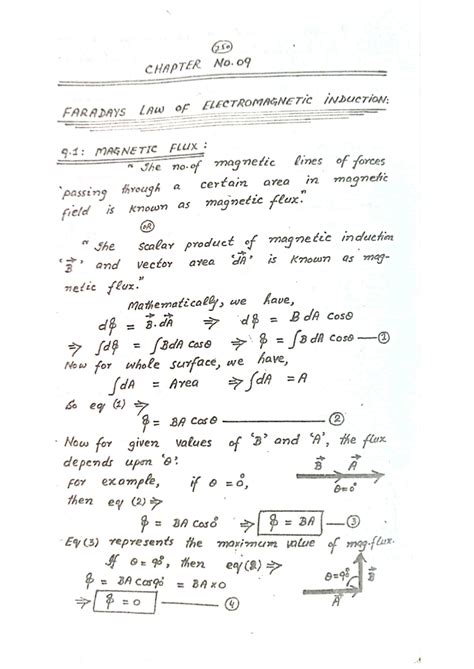 250
CHAPTER NO.09
FARADAYS LAW OF ELECTROMAGNETIC INDUCTION:
9.1: MAGNETIC FLUX:
"The no.of magnetic lines of forces
passing through a certain area in magnetic
field is known as magnetic flux."
OR
"The scalar product of magnetic induction
'B⃗' and vector area 'dA⃗' is known as mag-
netic flux."
Mathematically, we have,
dφ = B⃗.dA⃗ ⇒ dφ = B dA cosθ
⇒ ∫dφ = ∫BdA cosθ ⇒ φ = ∫B dA cosθ — ①
Now for whole surface, we have,
∫dA = Area ⇒ ∫dA = A
So eq (1) ⇒
φ = BA cosθ — ②
Now for given values of 'B' and 'A', the flux
depends upon 'θ'.
B⃗ A⃗
For example, if θ = 0°,
θ=0°
then eq (2) ⇒
φ = BA cos0° ⇒ φ = BA — ③
Eq (3) represents the maximum value of mag-flux.
If θ = 90°, then eq(2) ⇒
θ=90° B⃗
φ = BA cos90° = BA×0
A⃗
⇒ φ = 0 — ④